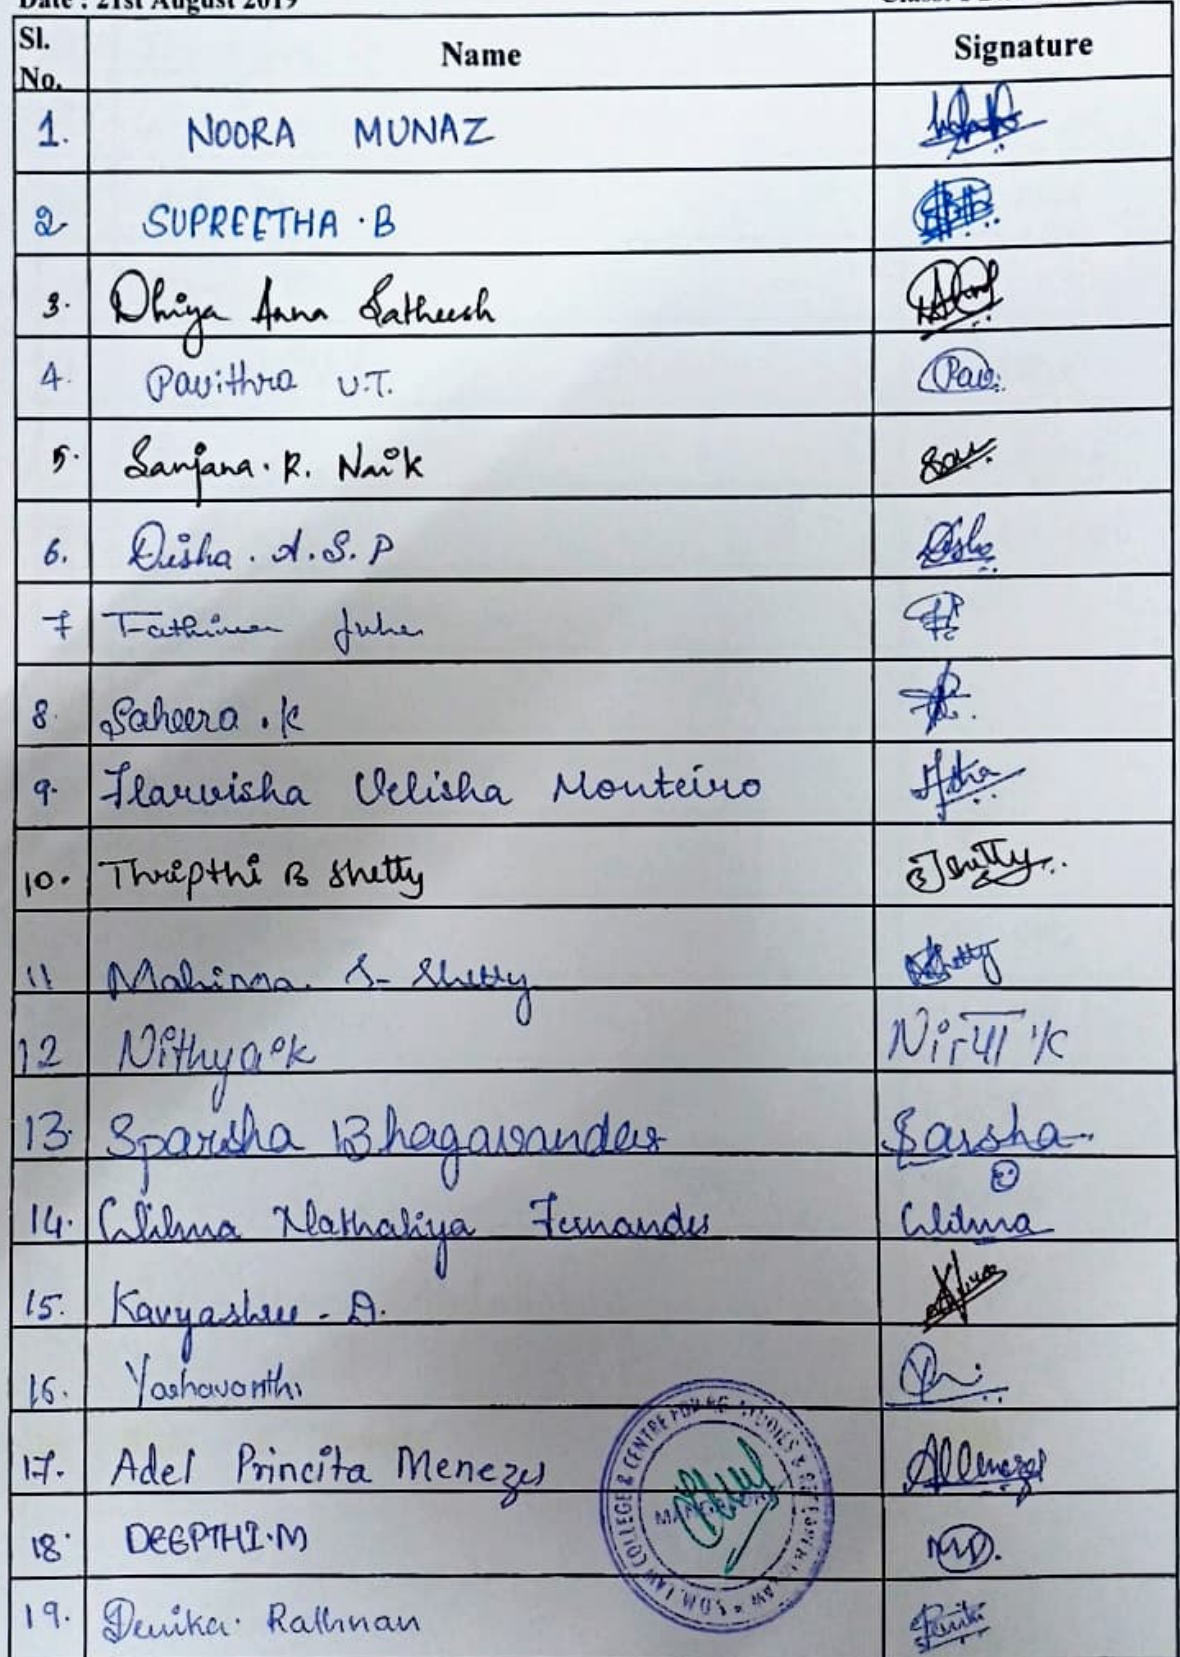 Date : 21st August 2019
Sl. No. Name Signature
1. NOORA MUNAZ
2 SUPREETHA . B
3. Dhiya Anna Satheesh
4. Pavithra U.T. Pav.
5. Sanjana . R. Naik San
6. Disha . A.S.P Disha
7 Fathima Juha
8. Saheera . K
9. Flarvisha Velisha Monteiro
10. Thripthi B Shetty Shetty
11 Mahima. S- Shetty Shetty
12 Nithya K
13. Sparsha Bhagavandas Sarsha
14. Wilma Nathaliya Fernandes Wilma
15. Kavyashree - D.
16. Yashavanthi
17. Adel Princita Menezes AMenezes
18. DEEPTHI.M
S.D.M. LAW COLLEGE & CENTRE FOR PG STUDIES & RESEARCH IN LAW
19. Denika Rathnan